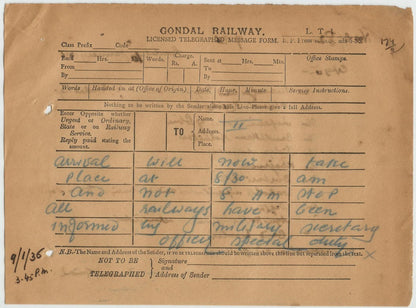 GONDAL RAILWAY.
L. T. 1
LICENSED TELEGRAPH MESSAGE FORM.
Class Prefix Code
Recd Hrs. Words. Charge. Rs. A. Sent at Hrs. M. Office Stamps.
From To
By By
Words Handed in at (Office of Origin). Date. Hour. Minute. Service Instructions.
Nothing to be written by the Sender above this Line—Please give a full Address.
Enter Opposite whether
Urgend or Ordinary,
State or on Railway
Service.
Reply paid stating the
amount.
TO
Name.
Address.
Place.
"
arrival will now take
place at 5/30 am
and not 8 AM stop
all railways have been
informed by military secretary
officer special duty x
9/1/36
3.45 P.M.
N.B.-The Name and Address of the Sender, if to be TELEGRAPHED should be written above, this line
NOT TO BE
TELEGRAPHED
Signature
and
Address of Sender